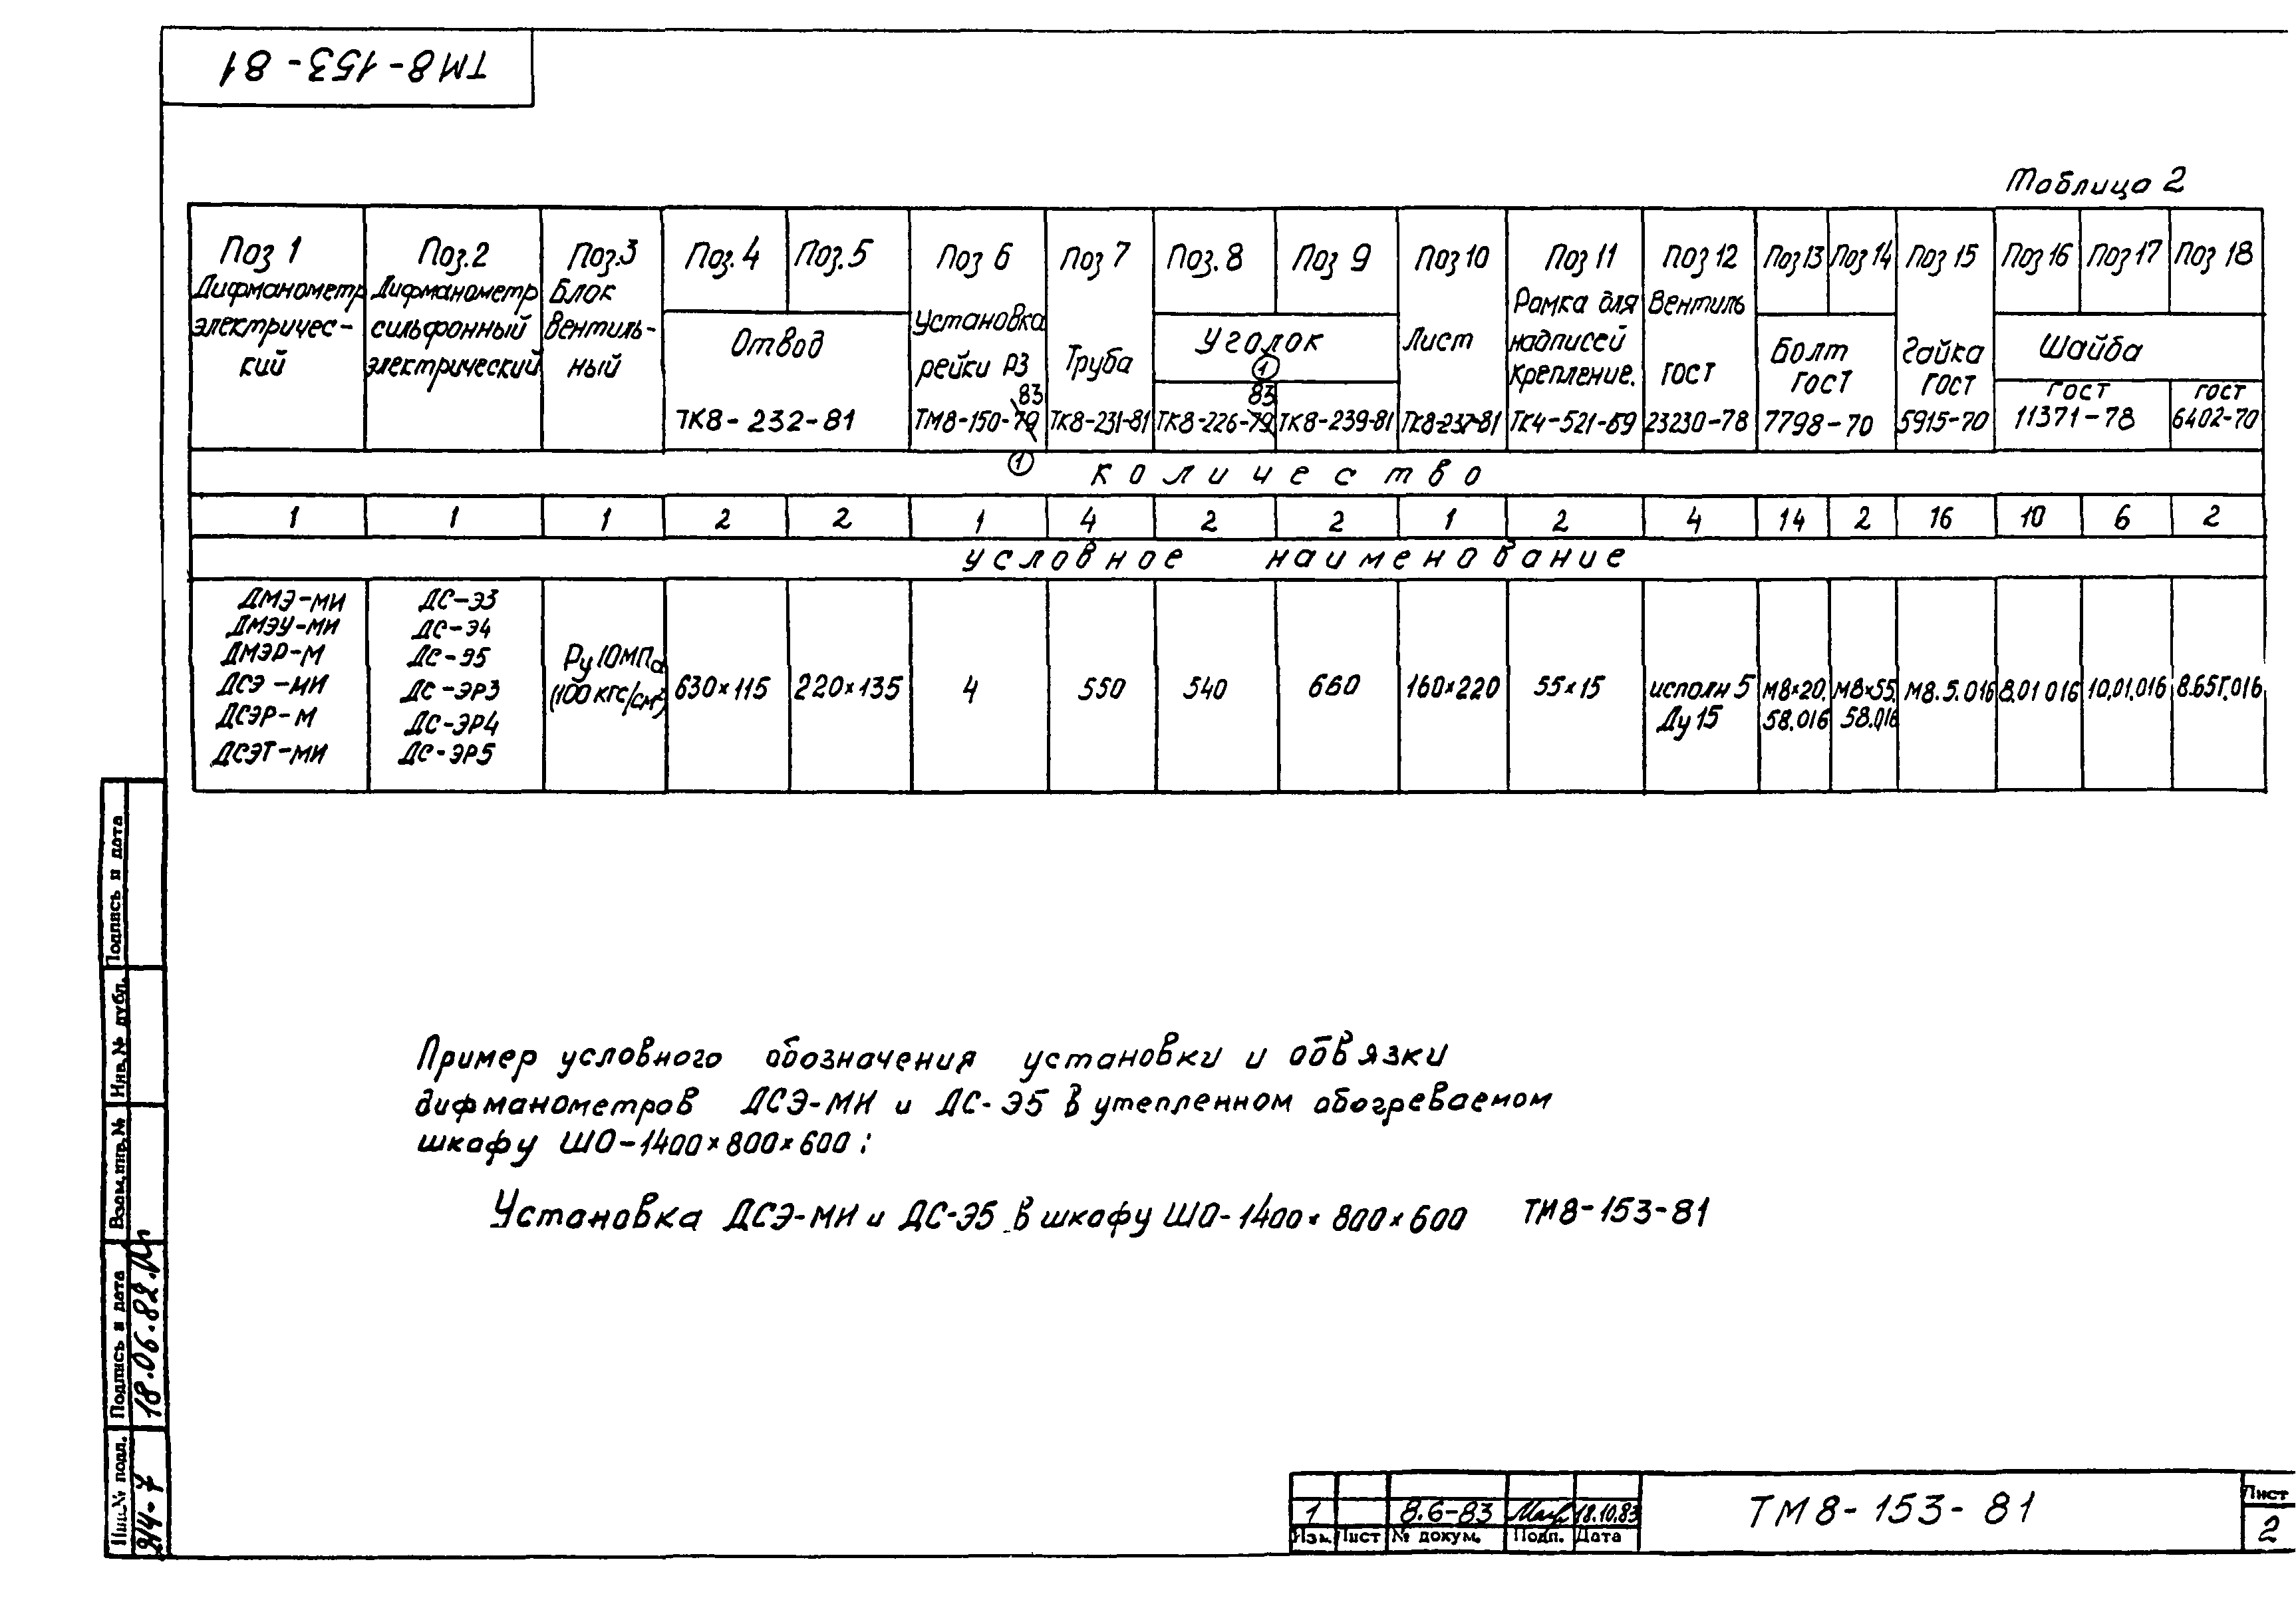 ТМ8-153-81
Таблица 2
Поз 1 Поз.2 Поз.3 Поз.4 Поз.5 Поз 6 Поз 7 Поз.8 Поз 9 Поз 10 Поз 11 Поз 12 Поз 13 Поз 14 Поз 15 Поз 16 Поз 17 Поз 18
Дифманометр электричес-кий
Дифманометр сильфонный электрический
Блок вентиль-ный
Отвод
ТК8-232-81
Установка рейки Р3
83
ТМ8-150-79
Труба
ТК8-231-81
Уголок
1
83
ТК8-226-79
ТК8-239-81
Лист
ТК8-237-81
Рамка для надписей крепление.
ТК4-521-69
Вентиль
ГОСТ
23230-78
Болт
ГОСТ
7798-70
Гайка
ГОСТ
5915-70
Шайба
ГОСТ
11371-78
ГОСТ
6402-70
1
количество
1 1 1 2 2 1 4 2 2 1 2 4 14 2 16 10 6 2
условное наименование
ДМЭ-МИ
ДМЭУ-МИ
ДМЭР-М
ДСЭ-МИ
ДСЭР-М
ДСЭТ-МИ
ДС-Э3
ДС-Э4
ДС-Э5
ДС-ЭР3
ДС-ЭР4
ДС-ЭР5
Ру 10МПа
(100 кгс/см²)
630×115
220×135
4
550
540
660
160×220
55×15
исполн 5
Ду 15
М8×20.
58.016
М8×55.
58.016
М8.5.016
8.01 016
10.01.016
8.65Г.016
Пример условного обозначения установки и обвязки
дифманометров ДСЭ-МИ и ДС-Э5 в утепленном обогреваемом
шкафу ШО-1400×800×600:
Установка ДСЭ-МИ и ДС-Э5 в шкафу ШО-1400×800×600 ТМ8-153-81
Подпись и дата
Инв.№ дубл.
Взам.инв.№
Подпись и дата
18.06.82
Инв.№ подл.
1 8.6-83 18.10.83
Изм. Лист № докум. Подп. Дата
ТМ8-153-81
Лист
2